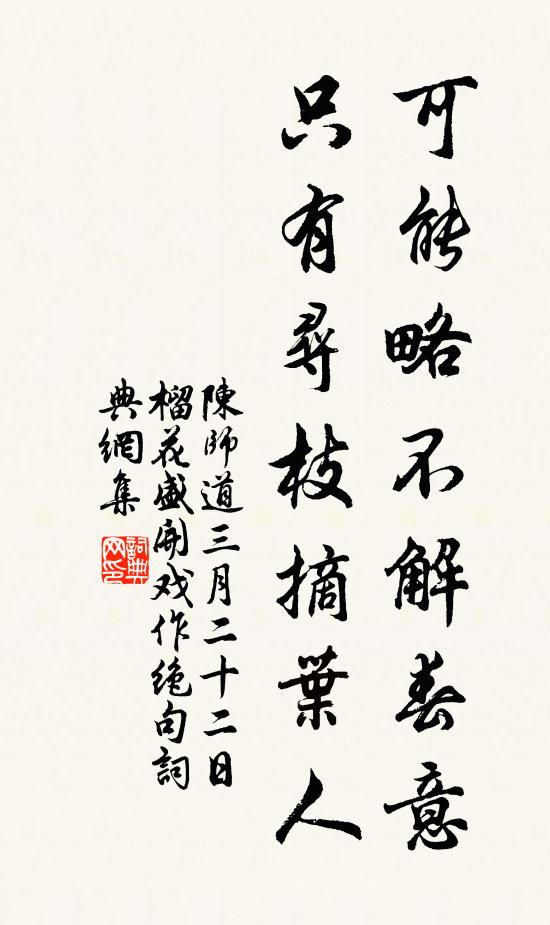 可能略不解春意
只有尋枝摘葉人
陳師道三月二十二日
榴花盛開戏作绝句詞
典網集
詞典
网印